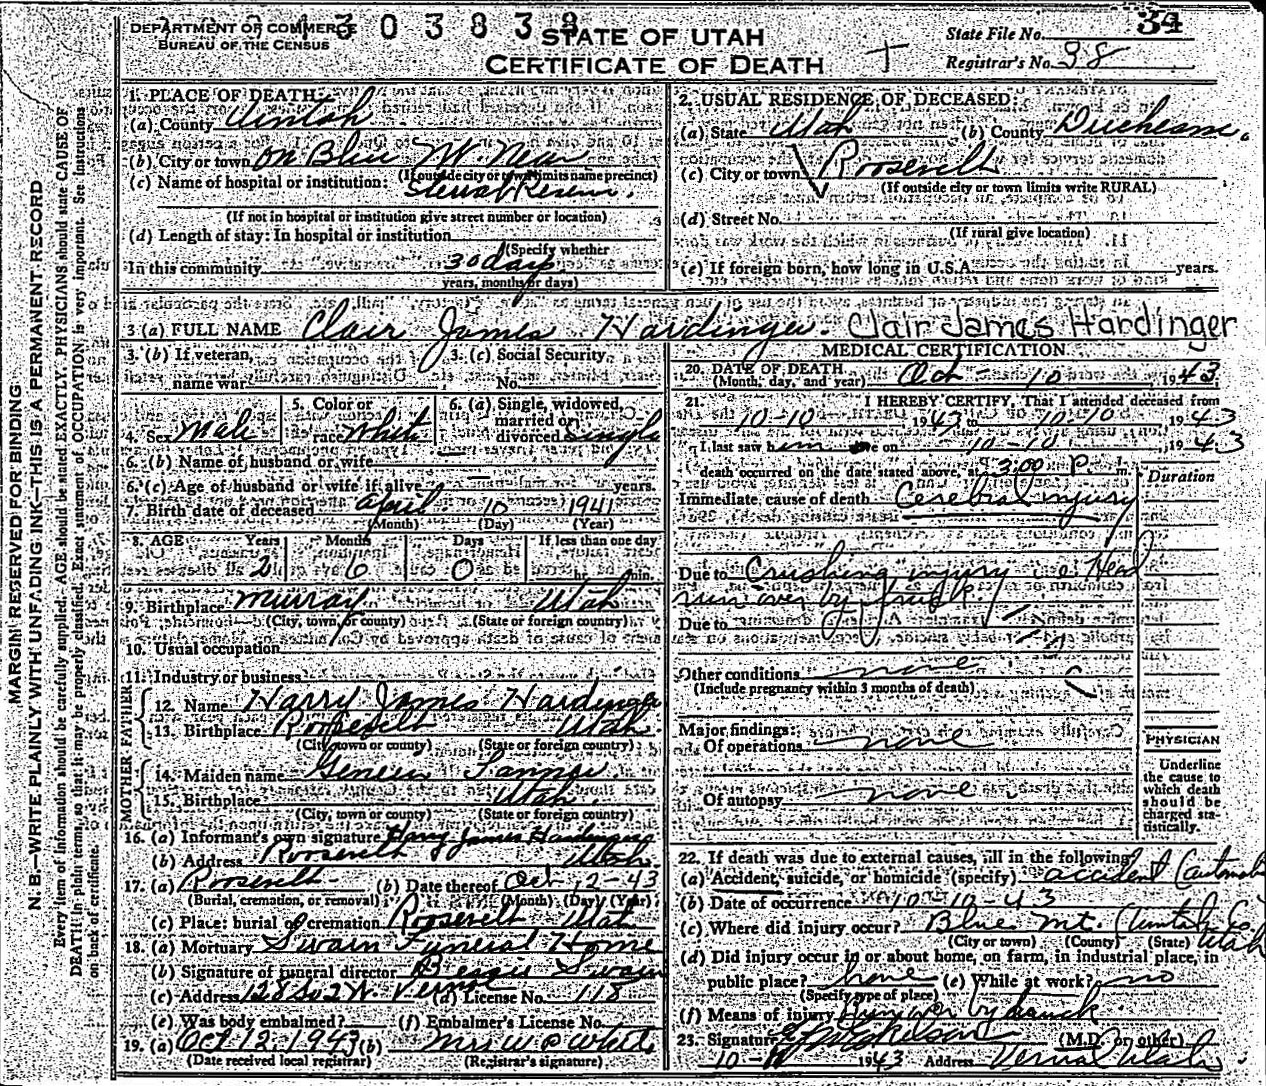 DEPARTMENT OF COMMERCE
BUREAU OF THE CENSUS
3 0 3 8 3 8
STATE OF UTAH
CERTIFICATE OF DEATH
State File No. 34
Registrar's No. 98
1. PLACE OF DEATH:
(a) County Uintah
(b) City or town on Blue Mt. Near
(If outside city or town limits name precinct)
(c) Name of hospital or institution:
(If not in hospital or institution give street number or location)
(d) Length of stay: In hospital or institution
(Specify whether
In this community 30 days
years, months or days)
2. USUAL RESIDENCE OF DECEASED:
(a) State Utah (b) County Duchesne.
(c) City or town Roosevelt
(If outside city or town limits write RURAL)
(d) Street No.
(If rural give location)
(e) If foreign born, how long in U.S.A. years.
3 (a) FULL NAME Clair James Hardinger. Clair James Hardinger
3. (b) If veteran, name war
3. (c) Social Security No.
4. Sex Male
5. Color or race White
6. (a) Single, widowed, married or divorced Single
6. (b) Name of husband or wife
6. (c) Age of husband or wife if alive years.
7. Birth date of deceased April 10 1941
(Month) (Day) (Year)
8. AGE Years Months Days If less than one day
2 6 0 hr. min.
9. Birthplace Murray Utah
(City, town, or county) (State or foreign country)
10. Usual occupation
11. Industry or business
FATHER
12. Name Harry James Hardinger
13. Birthplace Roosevelt Utah.
(City, town or county) (State or foreign country)
MOTHER
14. Maiden name
15. Birthplace Utah.
(City, town or county) (State or foreign country)
16. (a) Informant's own signature Harry James Hardinger
(b) Address Roosevelt Utah.
17. (a) Roosevelt (b) Date thereof Oct 12-43
(Burial, cremation, or removal) (Month) (Day) (Year)
(c) Place: burial or cremation Roosevelt Utah
18. (a) Mortuary Swain Funeral Home
(b) Signature of funeral director Swain
(c) Address 128 So 2 W. Vernal (d) License No. 118
(e) Was body embalmed? (f) Embalmer's License No.
19. (a) Oct 12, 1943 (b) Mrs W P
(Date received local registrar) (Registrar's signature)
MEDICAL CERTIFICATION
20. DATE OF DEATH
(Month, day, and year) Oct - 10, 1943
21. I HEREBY CERTIFY, That I attended deceased from
10-10 1943 to 10-10 1943
I last saw him on 10-10, 1943
death occurred on the date stated above, at 3:00 P. m.
Duration
Immediate cause of death Cerebral injury
Due to Crushing injury Head
run over by truck
Due to
Other conditions none
(Include pregnancy within 3 months of death)
Major findings:
Of operations none
Of autopsy none
PHYSICIAN
Underline
the cause to
which death
should be
charged sta-
tistically.
22. If death was due to external causes, fill in the following:
(a) Accident, suicide, or homicide (specify) accident
(b) Date of occurrence 10-10-43
(c) Where did injury occur? Blue Mt. Uintah Co Utah
(City or town) (County) (State)
(d) Did injury occur in or about home, on farm, in industrial place, in
public place? (e) While at work? no
(Specify type of place)
(f) Means of injury Run over by truck
23. Signature (M.D. or other)
1943 Address Vernal Utah
MARGIN RESERVED FOR BINDING
N. B.—WRITE PLAINLY WITH UNFADING INK—THIS IS A PERMANENT RECORD
Every item of information should be carefully supplied. AGE should be stated EXACTLY. PHYSICIANS should state CAUSE OF
DEATH in plain terms, so that it may be properly classified. Exact statement of OCCUPATION is very important. See instructions
on back of certificate.